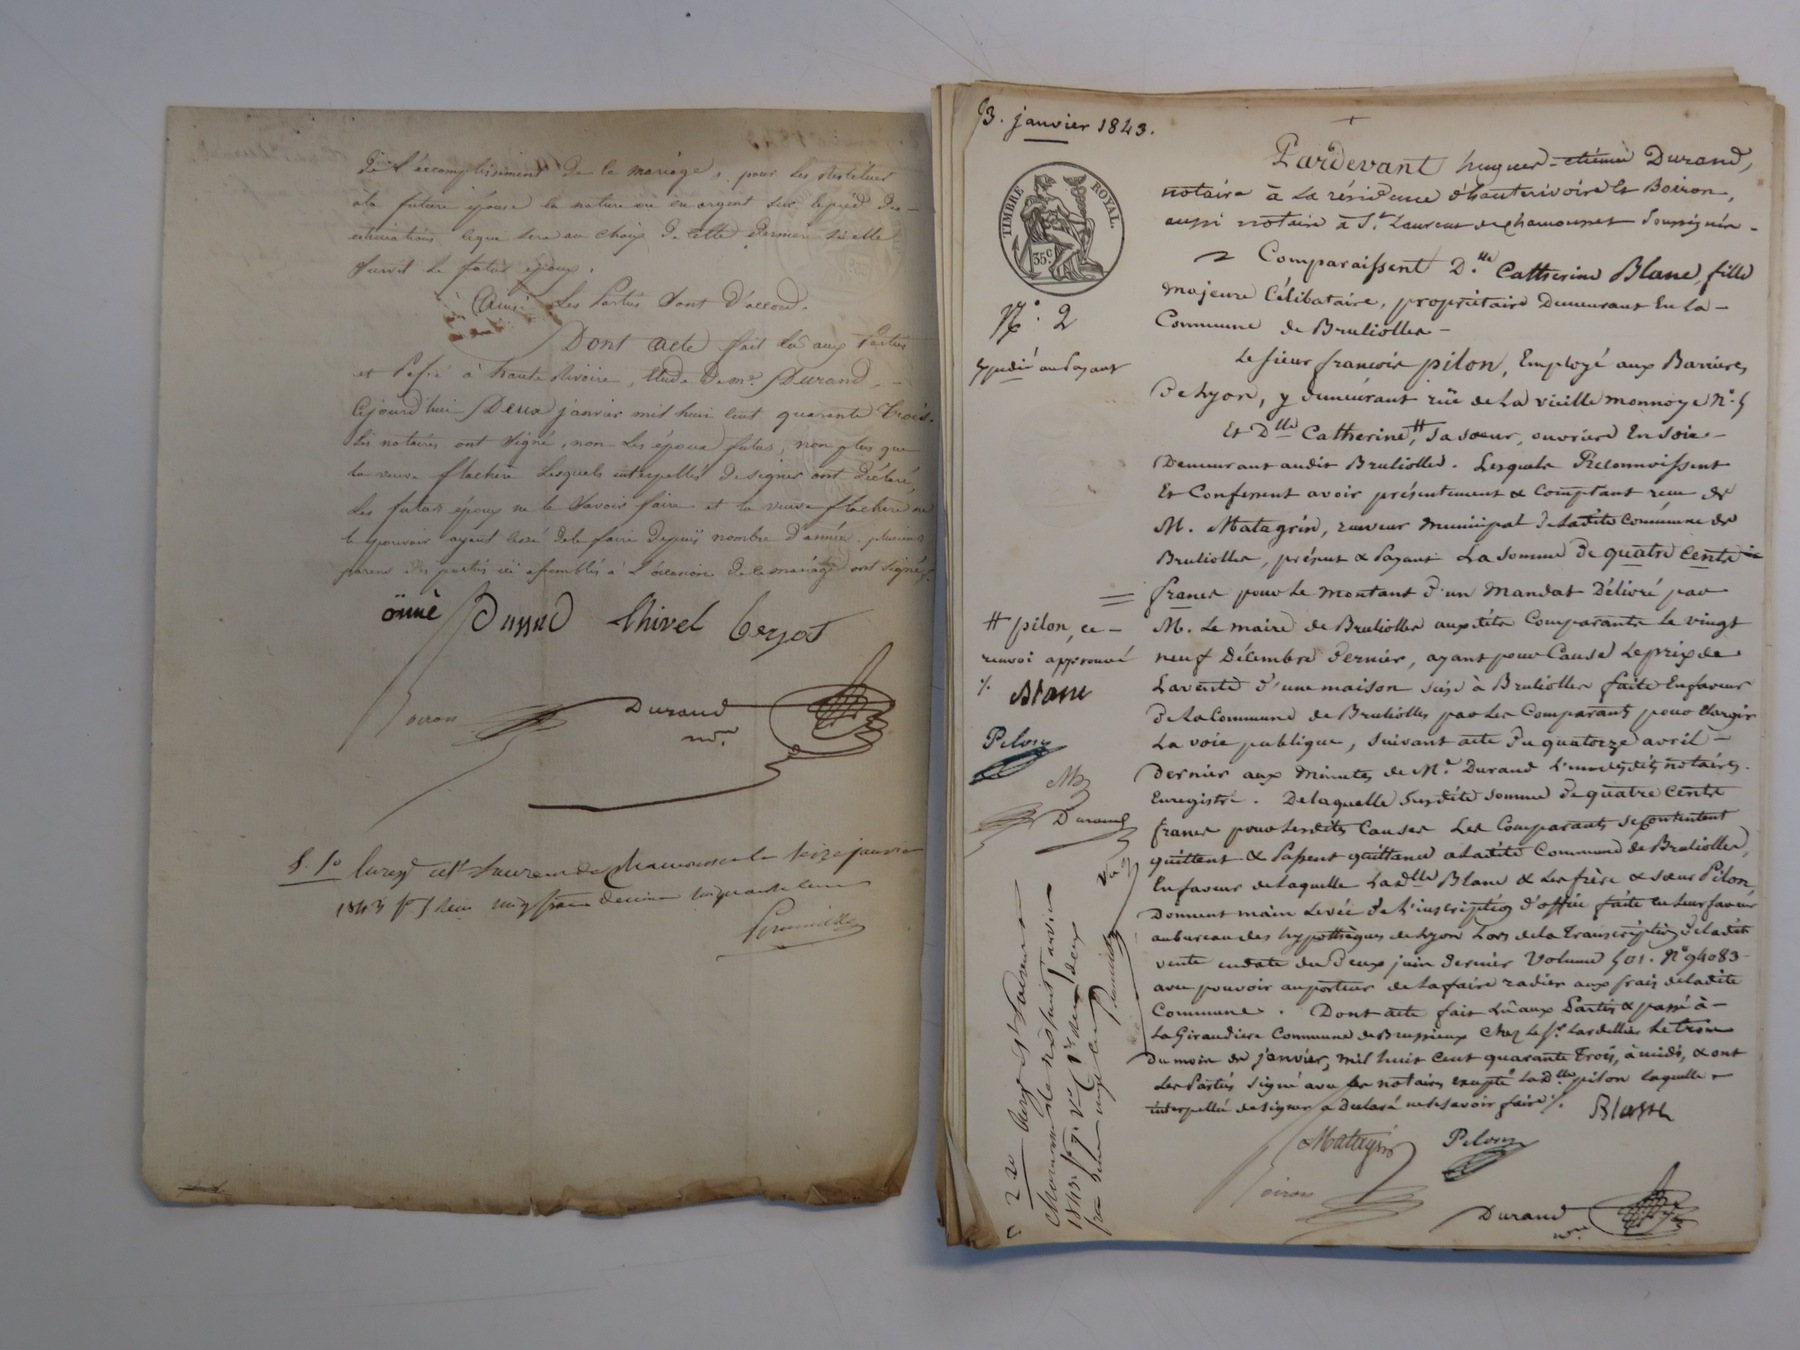 de l'accomplissement de le mariage, pour les restituer
à la future épouse en nature ou en argent sur le pied des
estimations, ce qui sera au choix de cette dernière si elle
survit le futur époux.
Ainsi les Parties sont d'accord.
Dont acte fait lû aux Parties
et Passé à haute Rivoire, Etude de Me. Durand,
Cejourd'hui Deux janvier mil huit cent quarante trois.
les notaires ont signé, non les époux futurs, non plus que
la veuve flachere lesquels interpellés de signer ont déclaré,
les futurs époux ne le savoir faire et la veuve flachere ne
le pouvoir ayant cessé de le faire depuis nombre d'année. plusieurs
parens des parties ici assemblés à l'occasion de ce mariage ont signé
Durand Thivel
Boiron Durand
nre.
Enreg. à St Laurent de Chamousset le seize janvier
1843 fo
3. janvier 1843.
TIMBRE ROYAL.
35c.
No. 2
Expedié au Payant
Pardevant hugues étienne Durand,
notaire à la résidence d'hauterivoire & Boiron,
aussi notaire à St. Laurent de chamousset soussignés -
Comparaissent D.lle Catherine Blanc, fille
majeure Célibataire, propriétaire Demeurant En la -
Commune de Brullolles -
Le sieur françois pilon, Employé aux Barrieres
De Lyon, y demeurant rüe de la vieille monnoye No. 5
Et Dlle Catherine # sa soeur, ouvriere En soie -
Demeurant audit Brullolles. Lesquels Reconnoissent
Et Confessent avoir présentement & Comptant reçu de
M. Matagrin, receveur municipal de ladite Commune de
Brullolles, présent & Payant La somme de quatre cents
francs pour le montant d'un mandat Délivré par
M. Le maire de Brullolles auxdits Comparants le vingt
neuf Décembre dernier, ayant pour Cause Le prix de
La vente d'une maison sise à Brullolles faite En faveur
de La Commune de Brullolles par Les Comparants pour Elargir
La voie publique, suivant acte du quatorze avril -
Dernier aux minutes de Me. Durand l'un desdits notaires.
Enregistré. De laquelle susdite somme de quatre cents
francs pour lesdites Causes Les Comparants se contentent
quittent & Passent quittance à ladite Commune de Brullolles,
En faveur de laquelle La dlle Blanc & Les frère & soeur Pilon,
Donnent main levée de l'inscription d'office faite en leur faveur
au bureau des hypothèques de Lyon Lors de la transcription de ladite
vente en date du deux juin dernier Volume 501. No 94083 -
avec pouvoir au porteur de la faire radier aux frais de ladite
Commune. Dont acte fait Lû aux Parties & passé à -
La Giraudiere Commune de Brussieux Chez Le Sr. Lardellier Le trois
Du mois de janvier, mil huit cent quarante trois, à midi, & ont
Les Parties signé avec les notaires excepté la dlle pilon laquelle
interpellée de signer a déclaré ne le savoir faire ./.
Blanc
Matagrin Pilon
Boiron
Durand
nre.
# pilon, ce -
renvoi approuvé
./. Blanc
Pilon
Durand